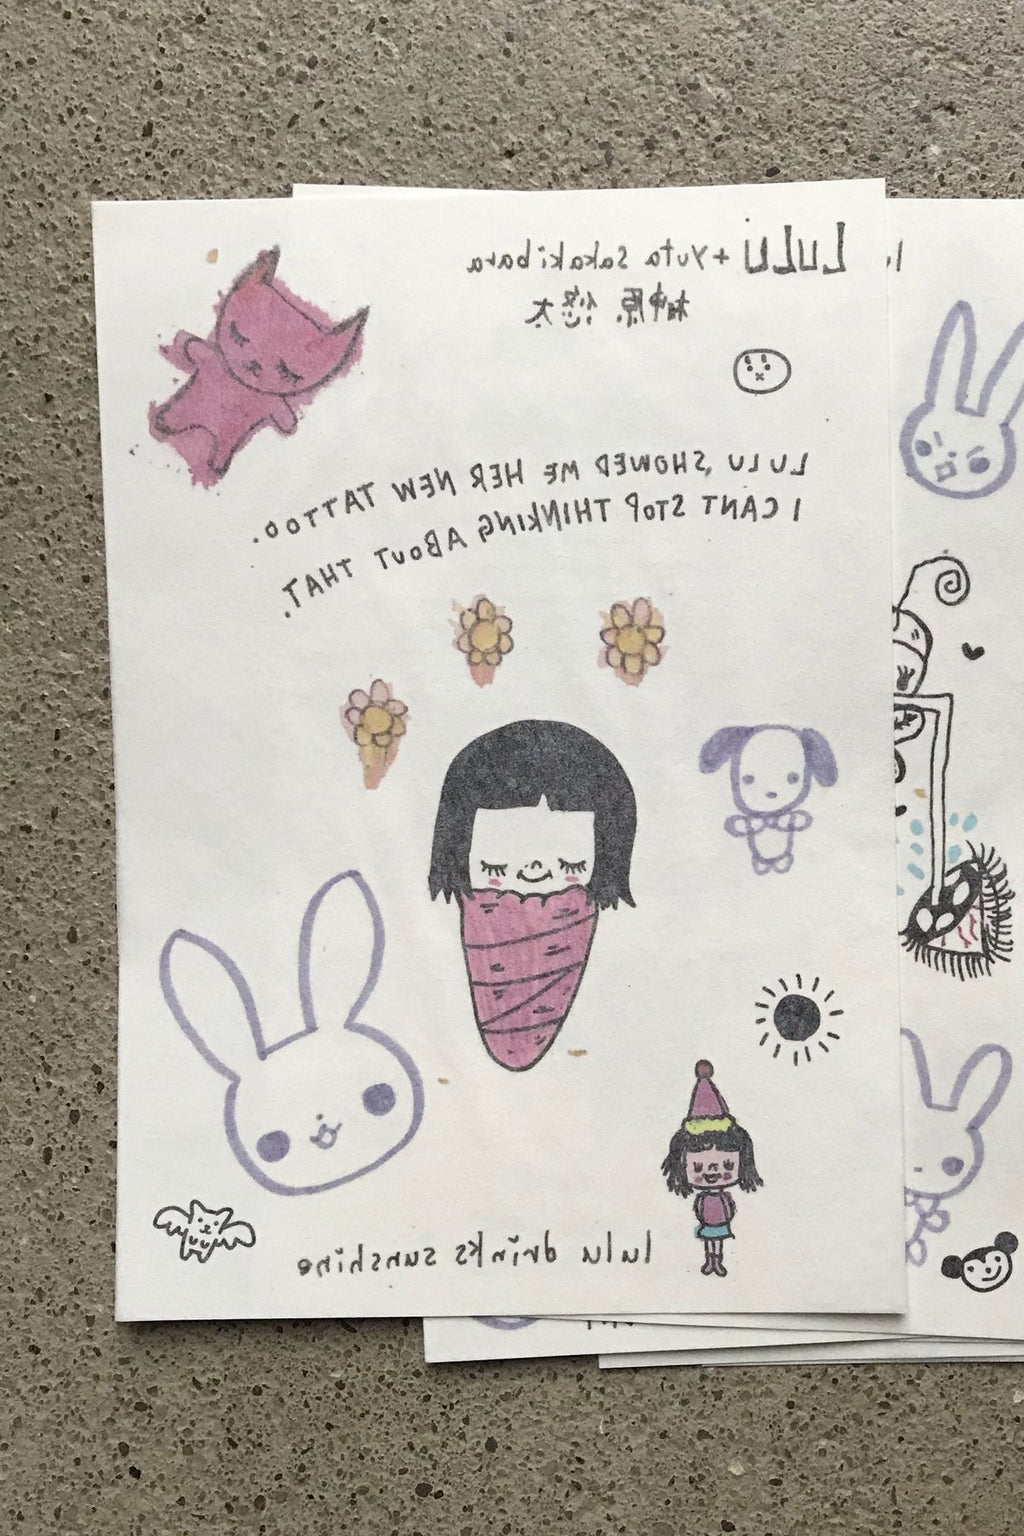 LULU + Yuta Sakakibara
榊原 悠太
LULU SHOWED ME HER NEW TATTOO.
I CANT STOP THINKING ABOUT THAT.
lulu drinks sunshine